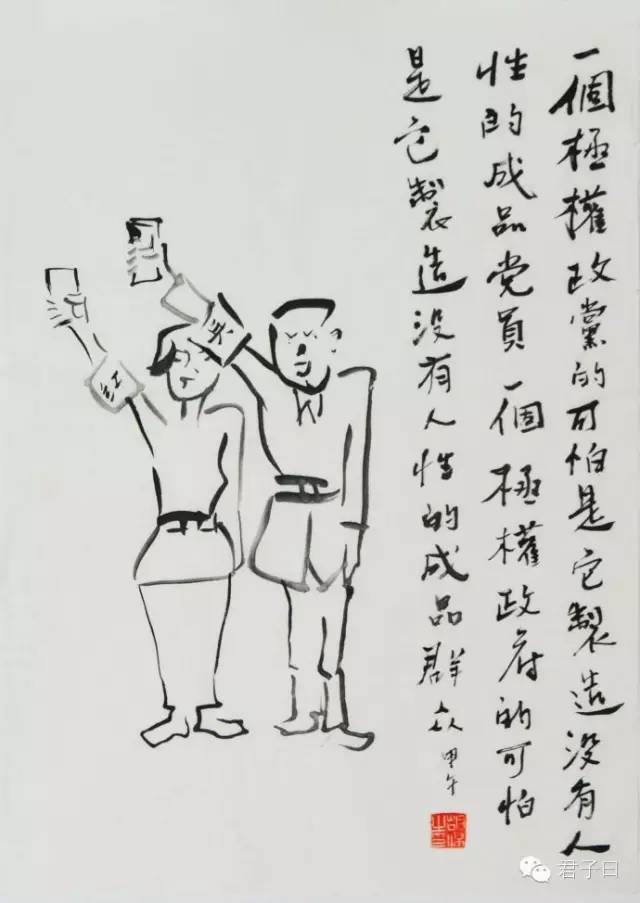 一個極權政黨的可怕是它製造没有人
性的成品党員一個極權政府的可怕
是它製造没有人性的成品群众
甲午
红
君子曰